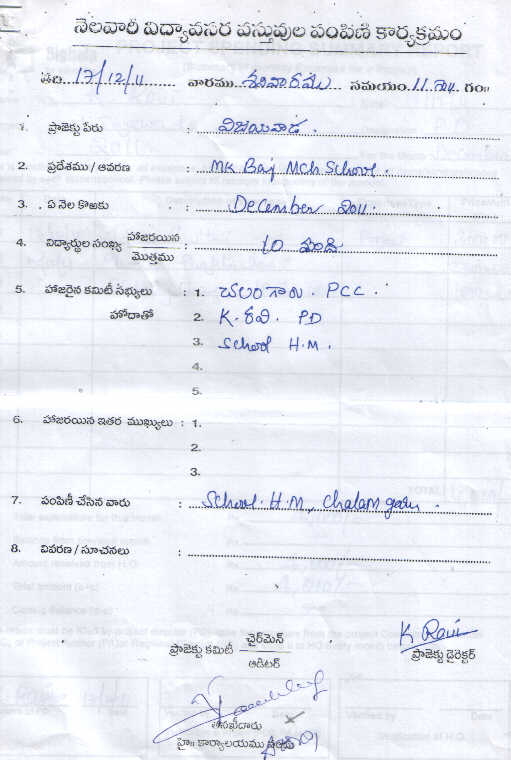 నెలవారీ విద్యావసర వస్తువుల పంపిణి కార్యక్రమం
తేది. 17/12/11 వారము శనివారము సమయం. 11 గం॥
1. ప్రాజెక్టు పేరు : విజయవాడ.
2. ప్రదేశము / ఆవరణ : MK Baj MCh School.
3. ఏ నెల కొఱకు : December 2011.
4. విద్యార్థుల సంఖ్య హాజరయిన : 10 మంది
మొత్తము
5. హాజరైన కమిటీ సభ్యులు : 1. చలంగారు. PCC.
హోదాతో 2. K. రవి. PD
3. School H.M.
4.
5.
6. హాజరయిన ఇతర ముఖ్యులు : 1.
2.
3.
7. పంపిణీ చేసిన వారు : School H.M, Chalam garu.
8. వివరణ / సూచనలు :
K Ravi
ప్రాజెక్టు కమిటీ చైర్‌మెన్ ప్రాజెక్టు డైరెక్టర్
ఆడిటర్
తనిఖీదారు
హై॥ కార్యాలయము